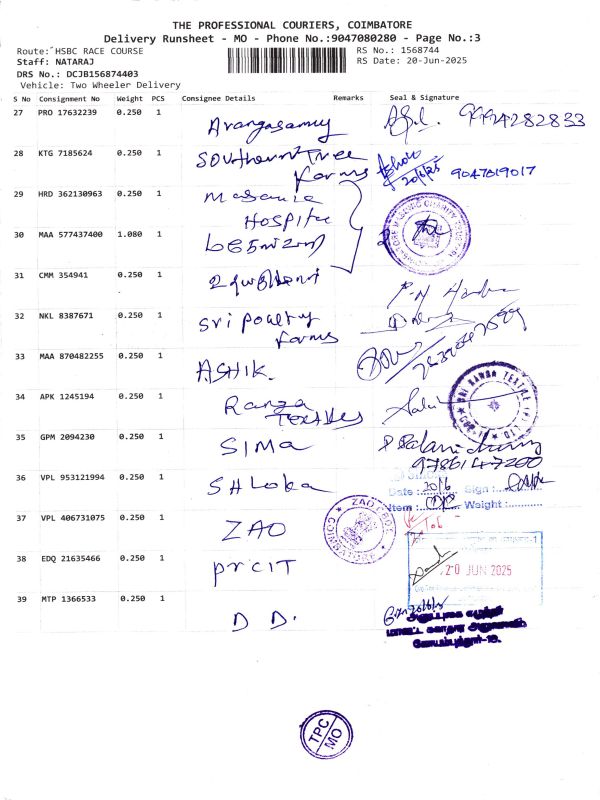 THE PROFESSIONAL COURIERS, COIMBATORE
Delivery Runsheet - MO - Phone No.:9047080280 - Page No.:3
Route:˝HSBC RACE COURSE
Staff: NATARAJ
DRS No.: DCJB156874403
Vehicle: Two Wheeler Delivery
RS No.: 1568744
RS Date: 20-Jun-2025
S No Consignment No Weight PCS Consignee Details Remarks Seal & Signature
27 PRO 17632239 0.250 1 Arangasamy 9994282833
28 KTG 7185624 0.250 1 Southern Tree farms 20/6/25 9047019017
29 HRD 362130963 0.250 1 Masonic Hospital
30 MAA 577437400 1.080 1
31 CMM 354941 0.250 1
32 NKL 8387671 0.250 1 Sri poultry farms
33 MAA 870482255 0.250 1 ASHIK.
34 APK 1245194 0.250 1 Ranga Textiles
35 GPM 2094230 0.250 1 SIMA
9786147200
36 VPL 953121994 0.250 1 Shloka
Date : 20/6 Sign :
Item : Weight :
37 VPL 406731075 0.250 1 ZAO
38 EDQ 21635466 0.250 1 PrCIT
20 JUN 2025
39 MTP 1366533 0.250 1 D D.
TPC
MO